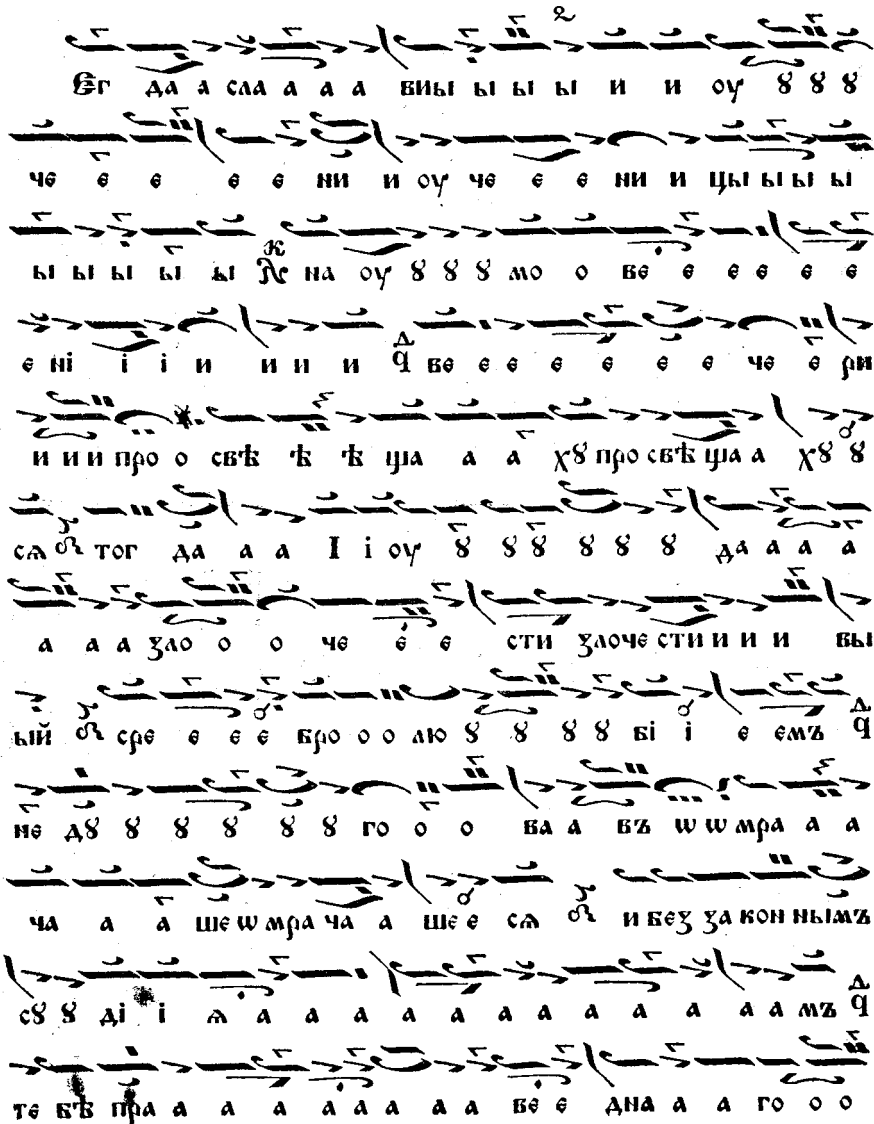 Ег да а сла а а а виы ы ы ы и и оу ꙋ ꙋ ꙋ
че е е е е ни и оу че е е ни и цы ы ы ы
ы ы ы ы ы на оу ꙋ ꙋ ꙋ мо о ве е е е е е
е ні і і и и и и ве е е е е е че е ри
и и и про о свѣ ѣ ѣ ща а а хꙋ про свѣ ща а хꙋ ꙋ
сѧ тог да а а І і оу ꙋ ꙋ ꙋ ꙋ ꙋ ꙋ да а а а
а а а ꙁло о о че е е сти ꙁлоче сти и и и вы
ый сре е е е бро о о лю ꙋ ꙋ ꙋ ꙋ бі і е емъ
не дꙋ ꙋ ꙋ ꙋ ꙋ ꙋ го о о ва а въ ѡ ѡ мра а а
ча а а ше ѡ мра ча а ше е сѧ и беꙁ ꙁа кон нымъ
сꙋ ꙋ ді і ѧ а а а а а а а а а а а мъ
те бѣ пра а а а а а а а а ве е дна а а го о о